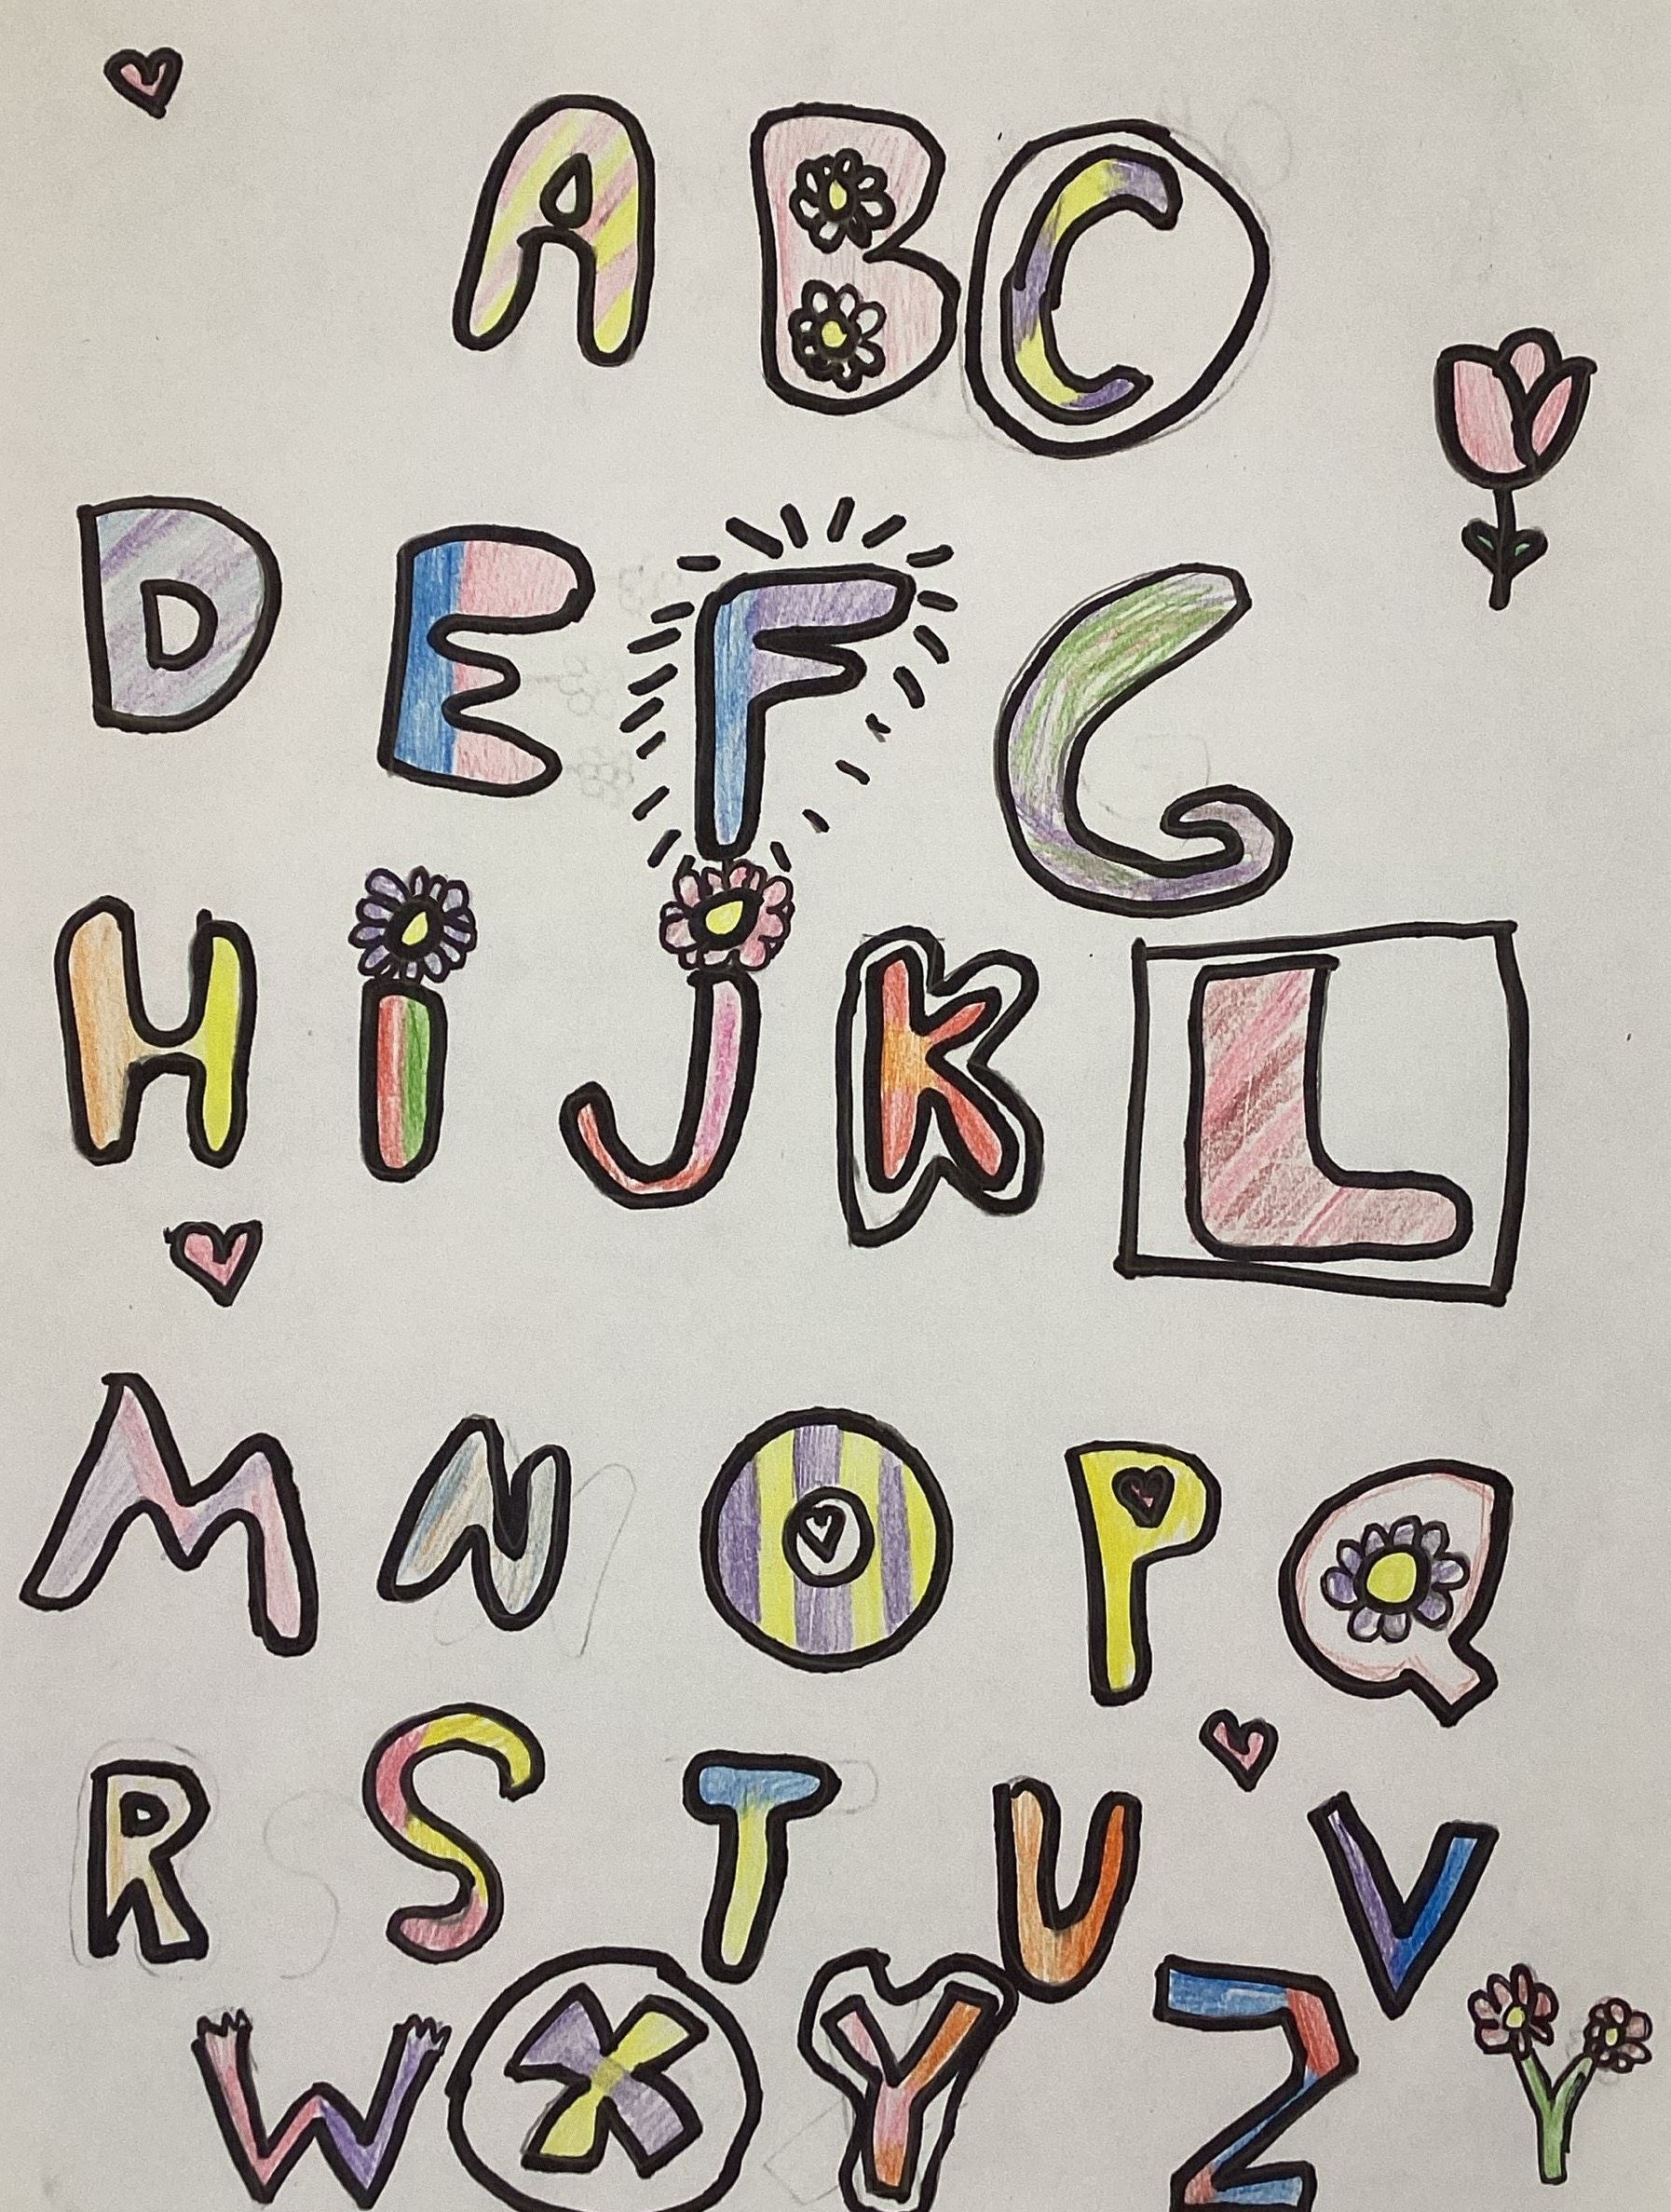 A B C
D E F G
H i J K L
M N O P Q
R S T U V
W X Y Z